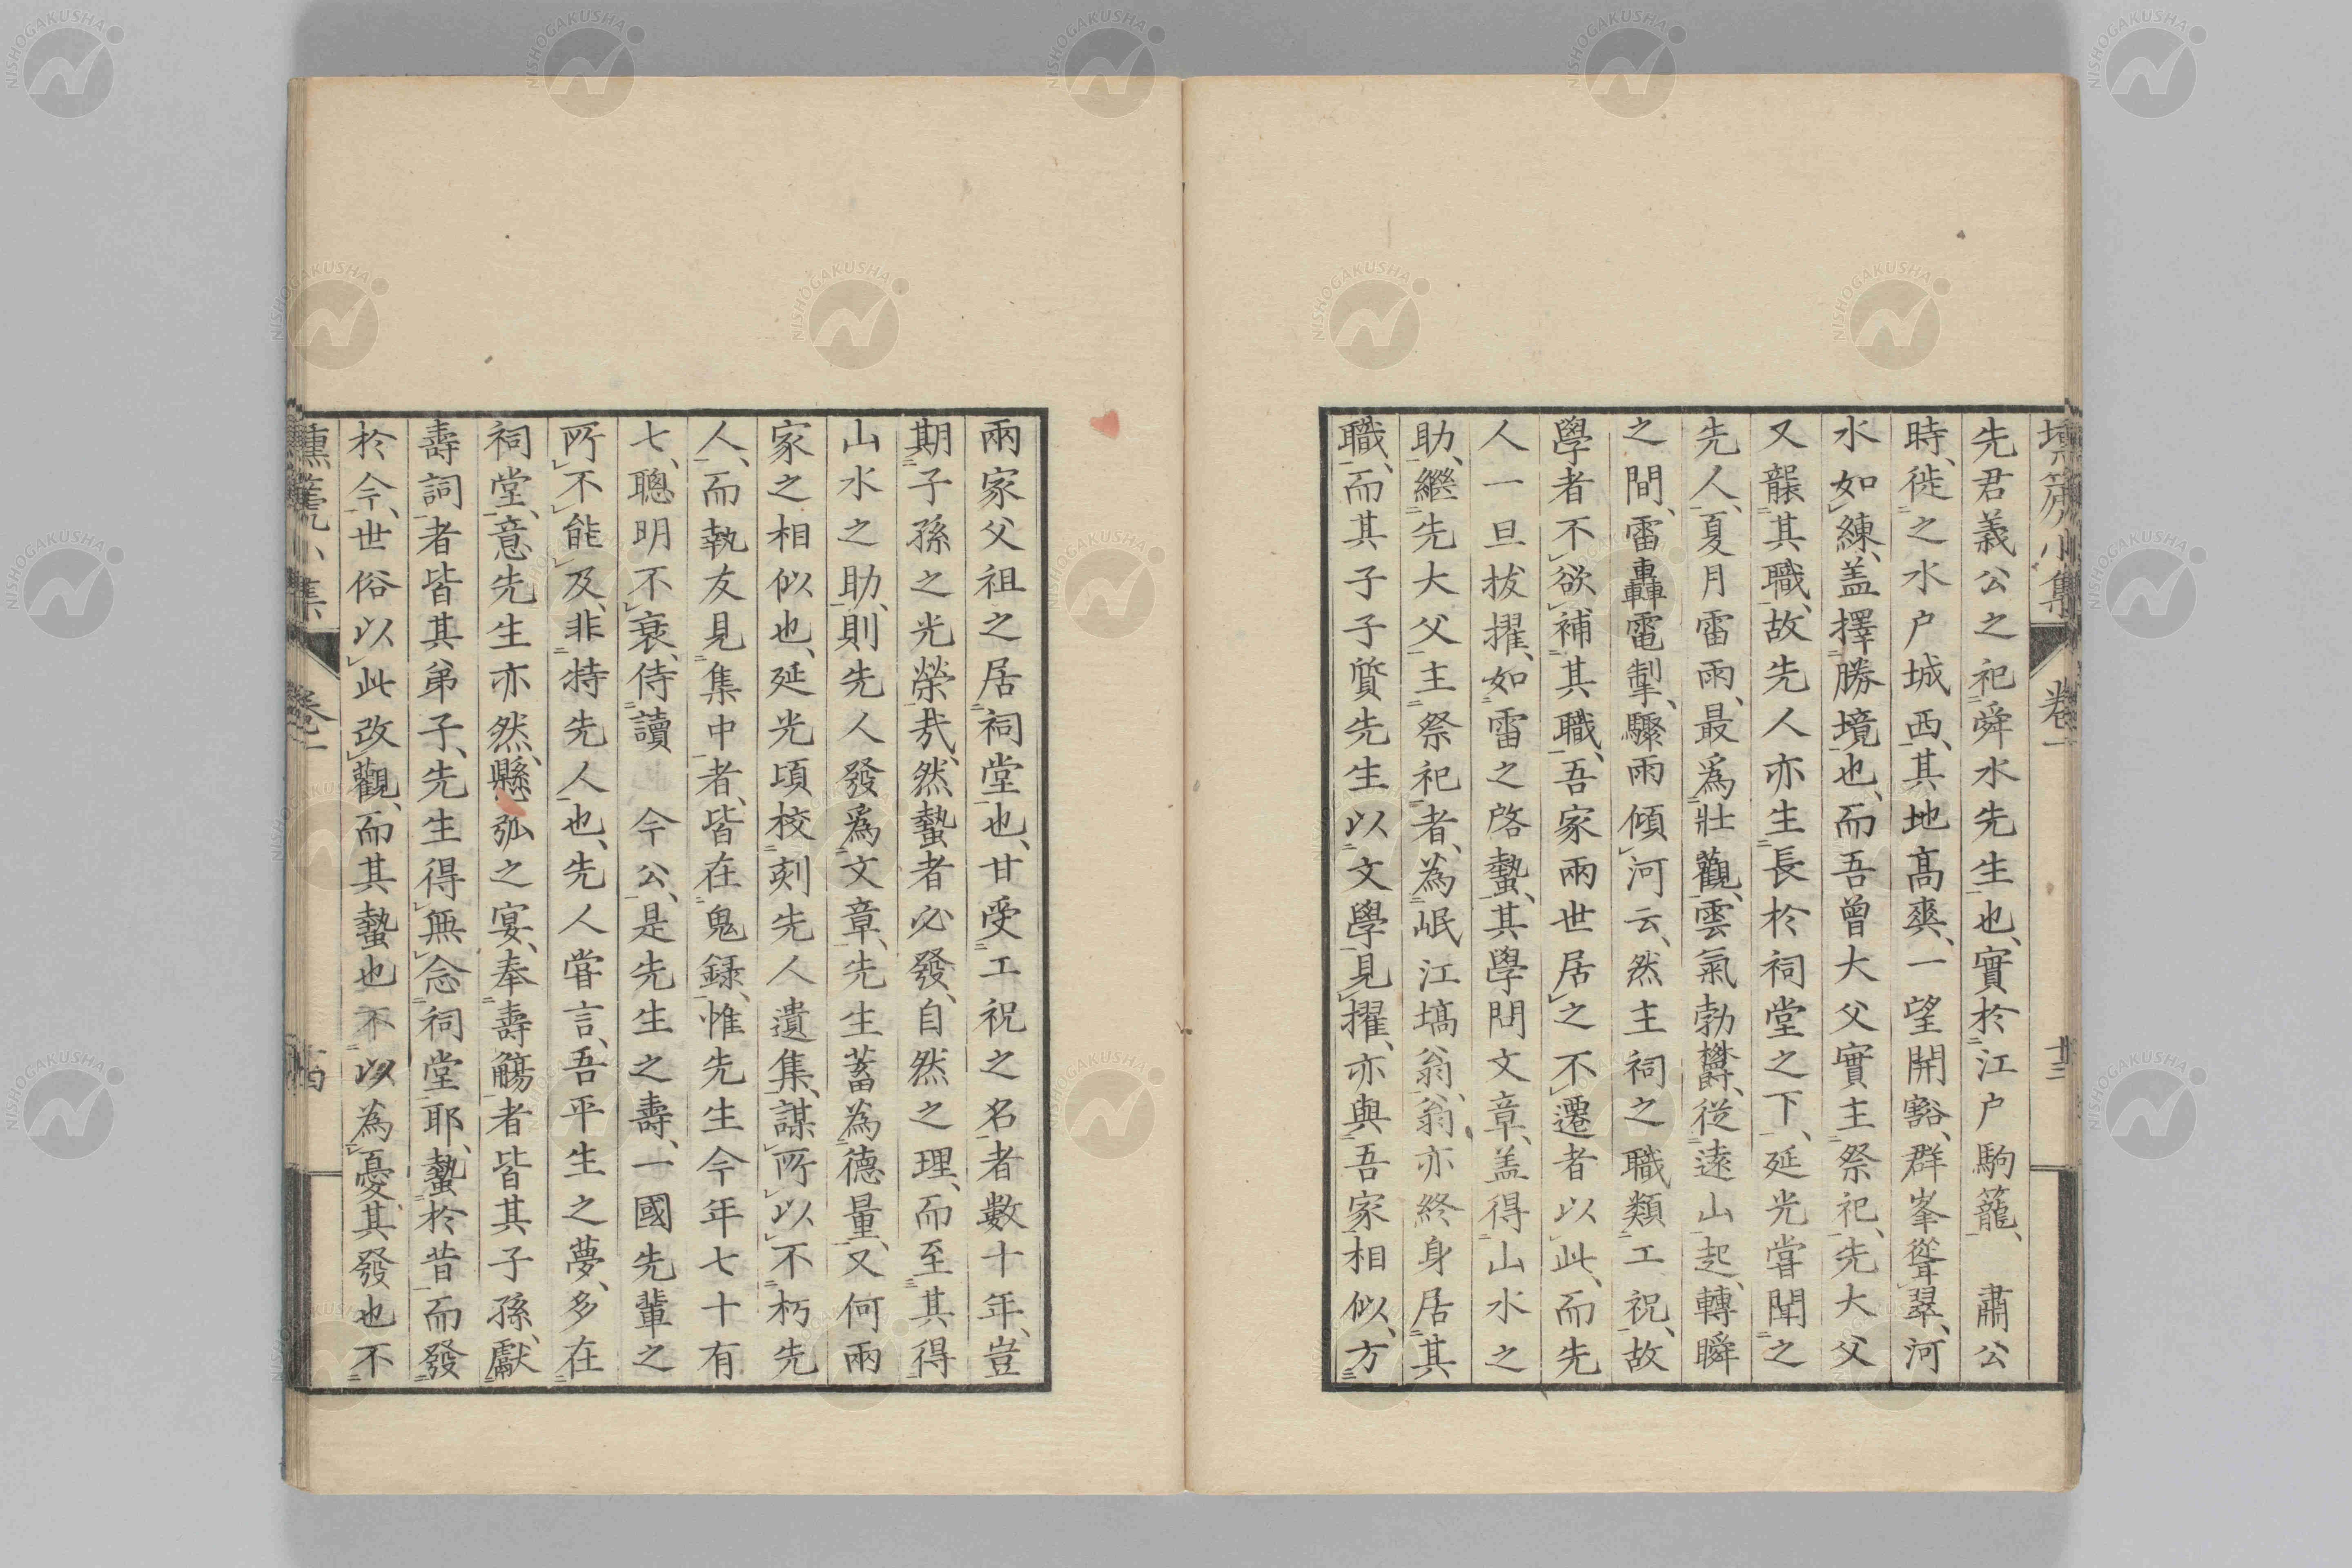 壎篪小集 卷一 十三
先君義公之祀舜水先生也、實於江户駒籠、 肅公
時、徙之水户城西、其地髙爽、一望開豁、群峯聳翠、河
水如練、盖擇勝境也、而吾曾大父實主祭祀、先大父
又襲其職、故先人亦生長於祠堂之下、延光嘗聞之
先人、夏月雷雨、最爲壯觀、雲氣勃欝、從遠山起、轉瞬
之間、雷轟電掣、驟雨傾河云、然主祠之職類工祝、故
學者不欲補其職、吾家兩世居之不遷者以此、而先
人一旦拔擢、如雷之啓蟄、其學問文章、盖得山水之
助、繼先大父主祭祀者、為岷江塙翁、翁亦終身居其
職、而其子子質先生以文學見擢、亦與吾家相似、方
兩家父祖之居祠堂也、甘受工祝之名者數十年、豈
期子孫之光榮㢤、然蟄者必發、自然之理、而至其得
山水之助、則先人發爲文章、先生蓄為德量、又何兩
家之相似也、延光頃校刻先人遺集、謀所以不朽先
人、而執友見集中者、皆在鬼録、惟先生今年七十有
七、聰明不衰、侍讀 今公、是先生之壽、一國先輩之
所不能及、非特先人也、先人嘗言、吾平生之夢、多在
祠堂、意先生亦然、縣弧之宴、奉壽觴者皆其子孫、獻
壽詞者皆其弟子、先生得無念祠堂耶、蟄於昔而發
於今、世俗以此改觀、而其蟄也不以為憂、其發也不
壎篪小集 卷一 十四
NISHOGAKUSHA